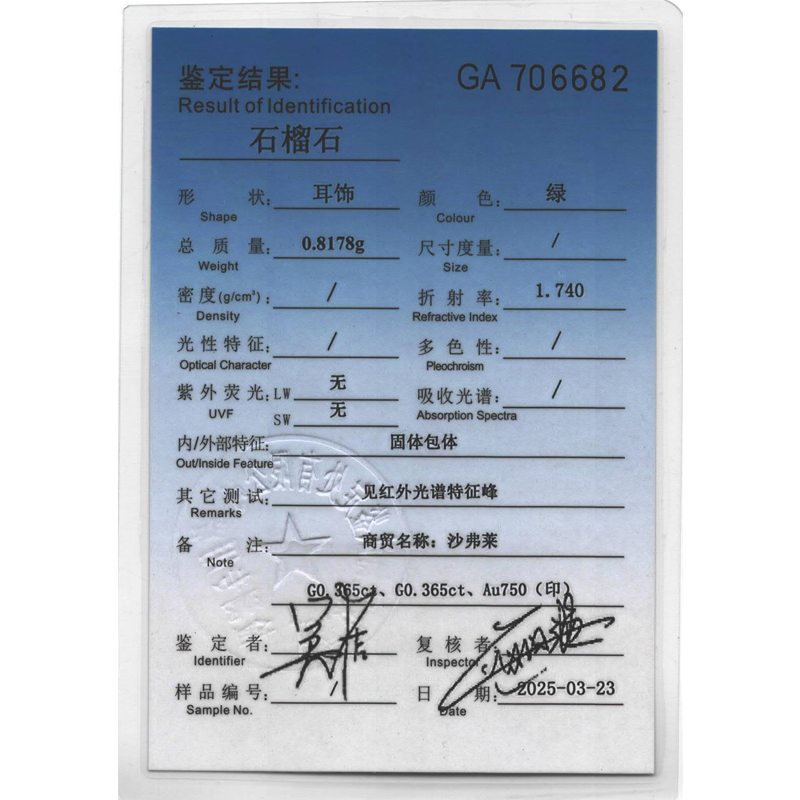 鉴定结果: GA 706682
Result of Identification
石榴石
形状: 耳饰 颜色: 绿
Shape Colour
总质量: 0.8178g 尺寸度量: /
Weight Size
密度(g/cm³): / 折射率: 1.740
Density Refractive Index
光性特征: / 多色性: /
Optical Character Pleochroism
紫外荧光: LW 无 吸收光谱: /
UVF SW 无 Absorption Spectra
内/外部特征: 固体包体
Out/Inside Feature
其它测试: 见红外光谱特征峰
Remarks
备注: 商贸名称: 沙弗莱
Note
G0.365ct、G0.365ct、Au750（印）
鉴定者: 复核者:
Identifier Inspector
样品编号: / 日期: 2025-03-23
Sample No. Date